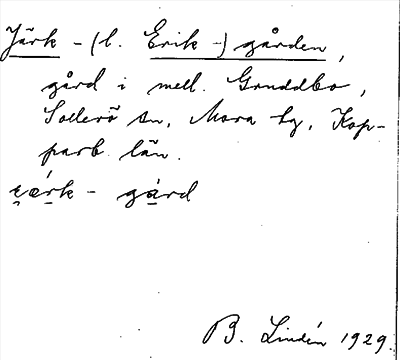 Järk - (l. Erik -) gården,
gård i mell. Gruddbo,
Sollerö sn, Mora tg, Kop-
parb. län.
gård
B. Lindén 1929.